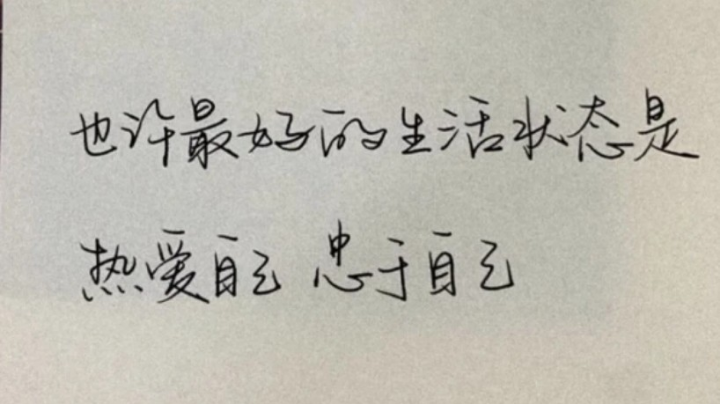 也许最好的生活状态是
热爱自己 忠于自己